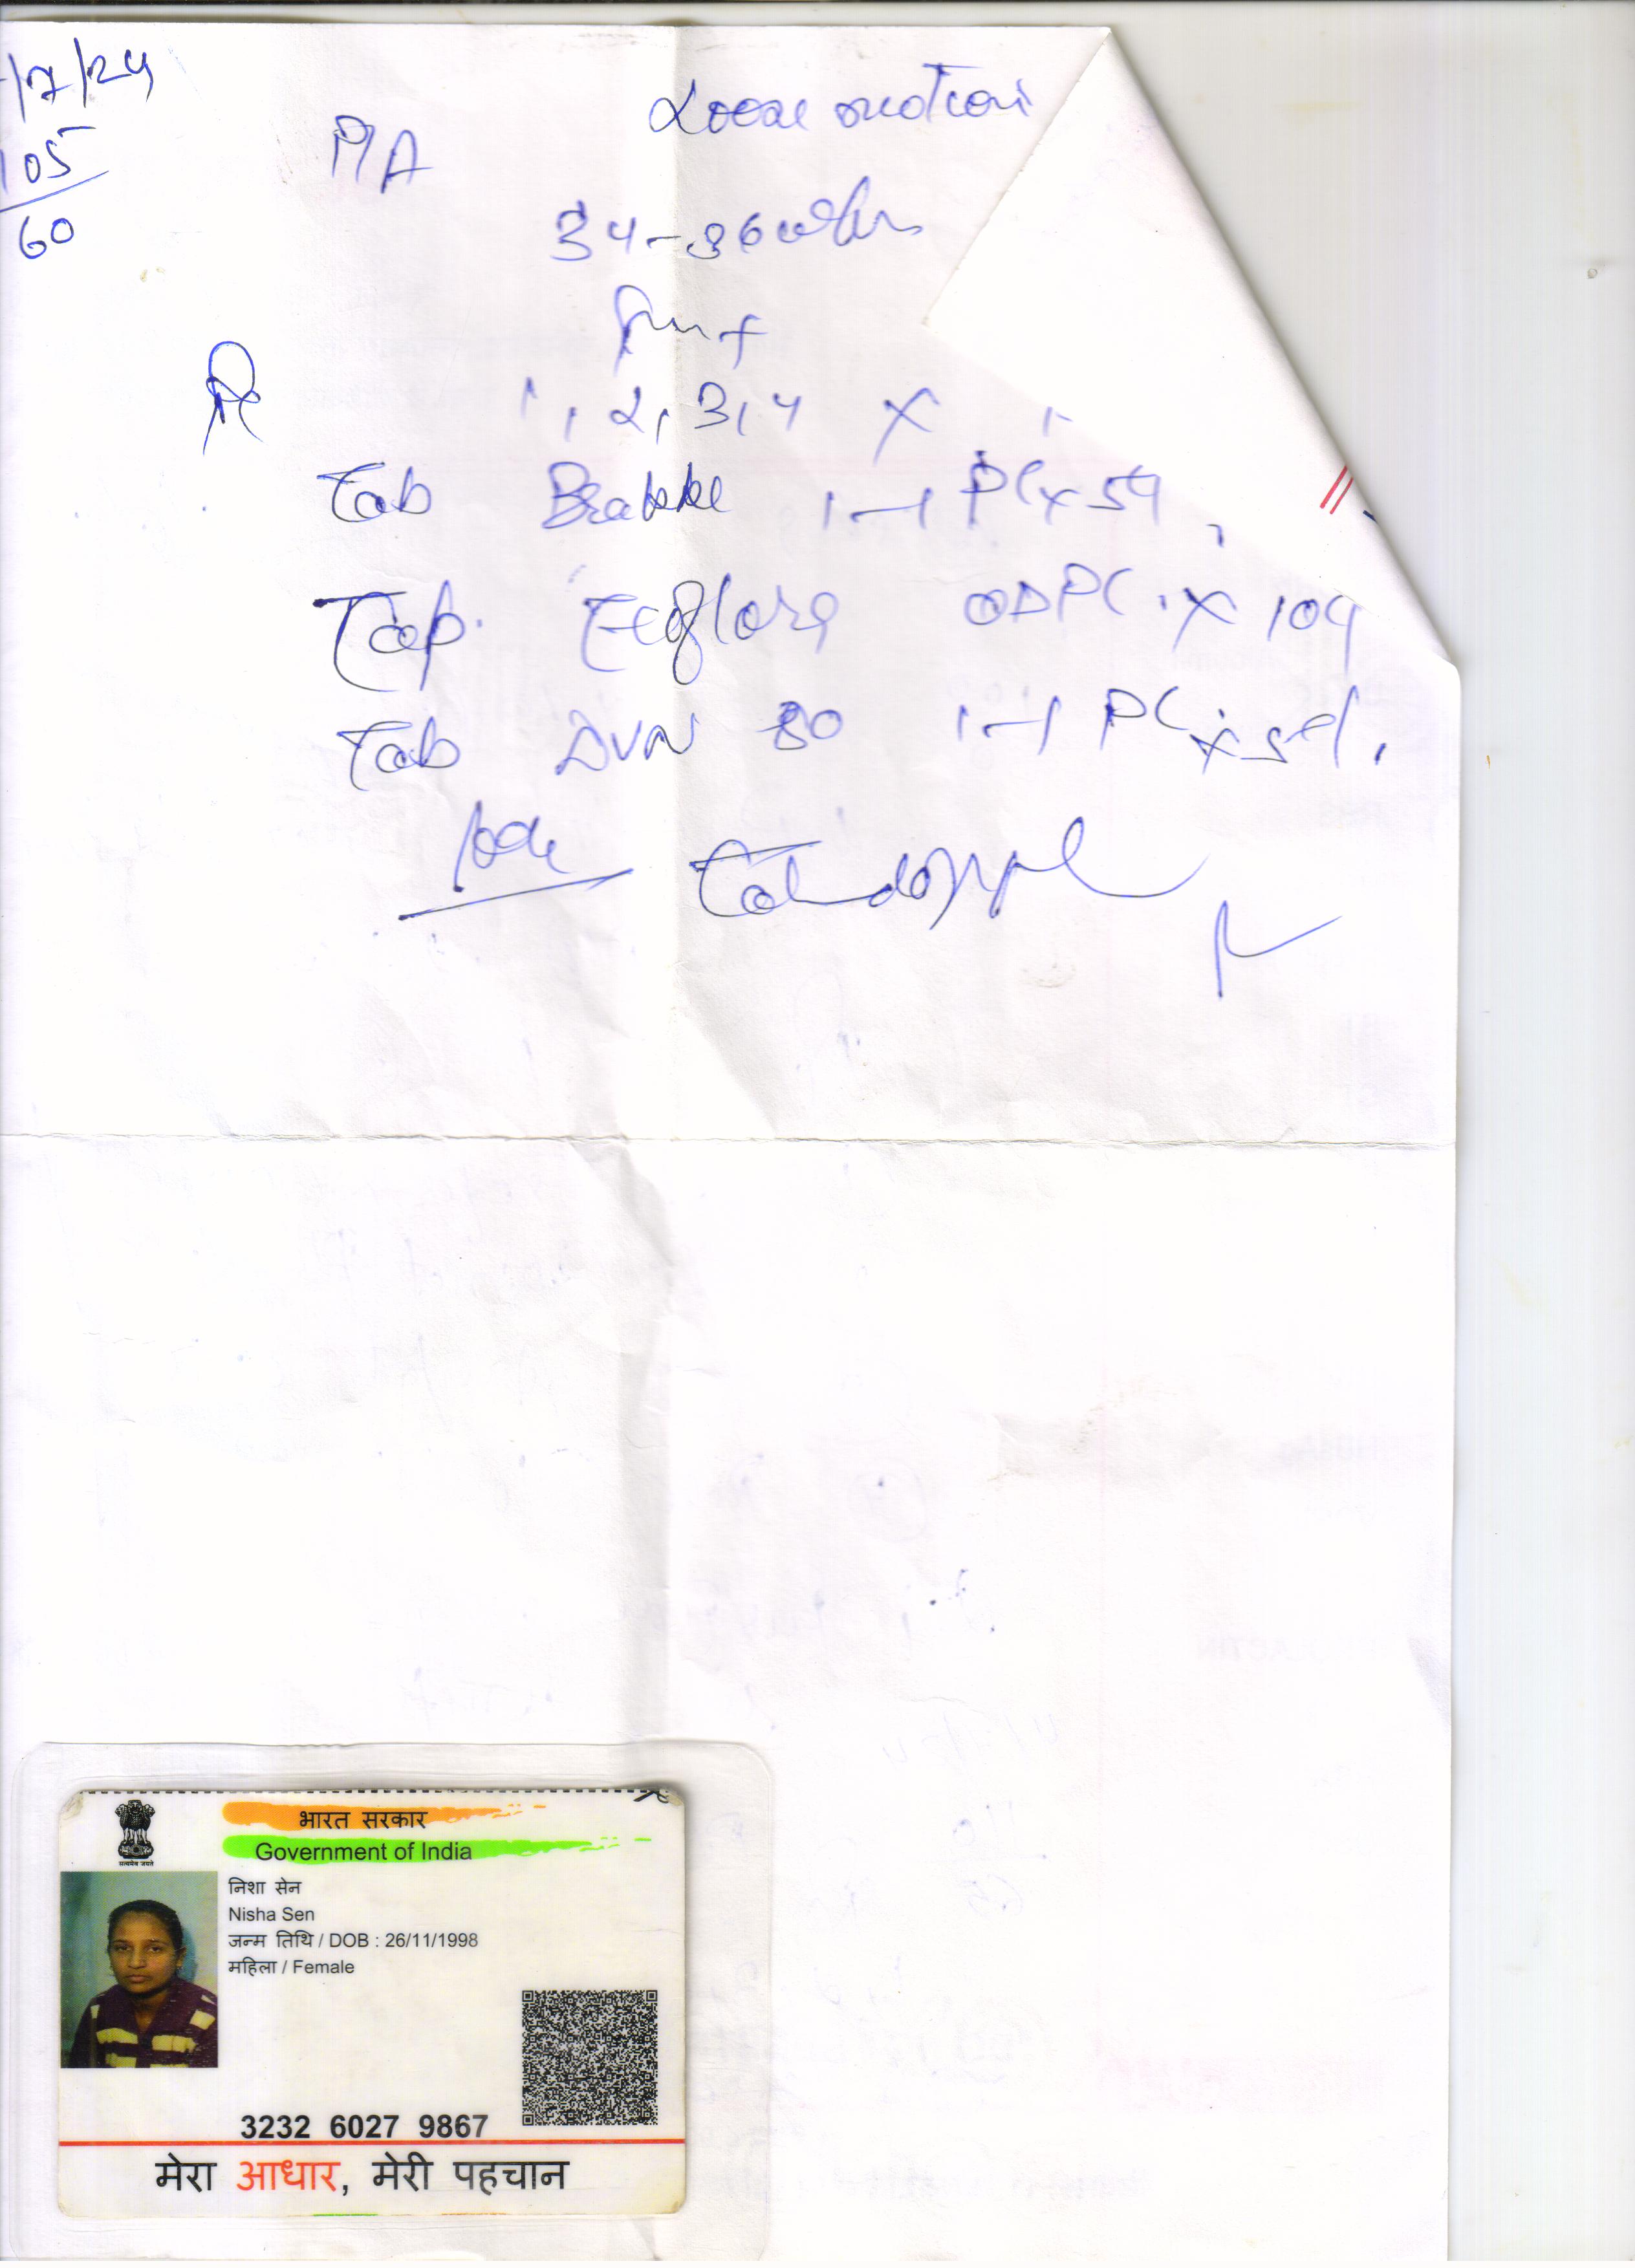 /7/24
105
60
Loose motion
P/A
34-36 wks
1, 2, 3, 4 X
Tab 1-1 PC x 5d
Cap. Ecoflora OD PC x 10d
Tab DVN 80 1-1 PC x 5d
Adv
भारत सरकार
Government of India
सत्यमेव जयते
निशा सेन
Nisha Sen
जन्म तिथि / DOB : 26/11/1998
महिला / Female
3232 6027 9867
मेरा आधार, मेरी पहचान